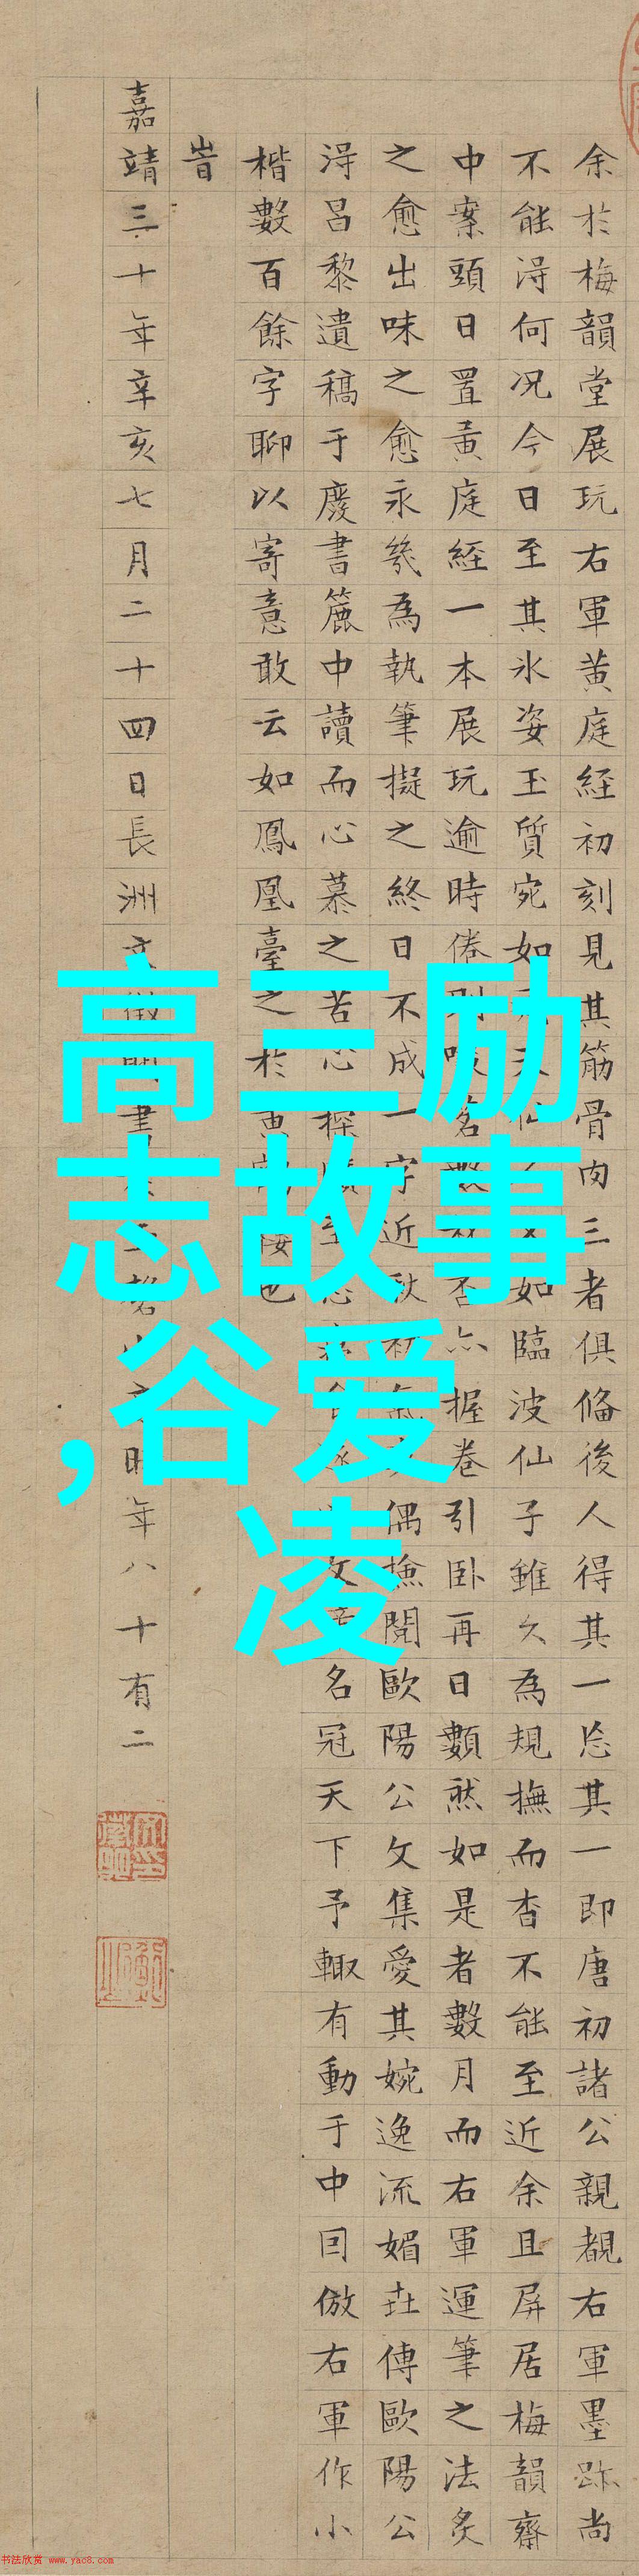 余於梅韻堂展玩右軍黄庭経初刻見其筋骨肉三者俱俻後人得其一忘其一即唐初諸公親覩右軍墨跡尚
不能淂何况今日至其氷姿玉質宛如如臨波仙子雖久為規撫而杳不能至近余且屏居梅韻齋
中案頭日置黄庭経一本展玩逾時倦則啜茗否亦握卷引卧再日數然如是者數月而右軍運筆之法炙
之愈出味之愈永幾為執筆擬之終日不成一字近秋初偶撿閱歐陽公文集愛其婉逸流媚壵傳歐陽公
淂昌黎遺稿于廢書簏中讀而心慕之苦心探至忘文名冠天下予輙有動于中囙倣右軍作小
楷數百餘字聊以寄意敢云如鳳凰臺之於黄鶴樓也
旹
嘉靖三十年辛亥七月二十四日長洲文徴明書時年八十有二
高三励
志故事
,谷爱
凌
书法欣赏 www.yac8.com